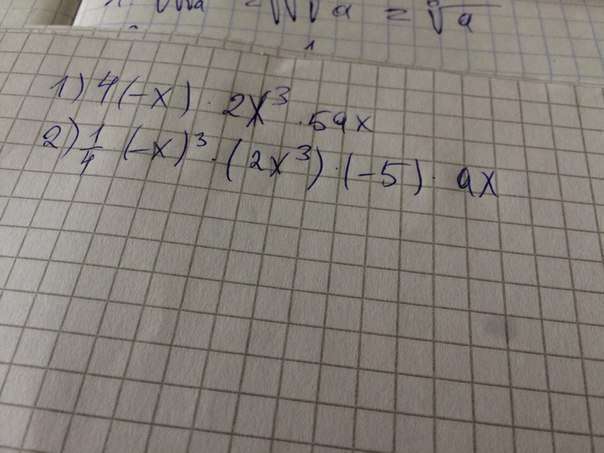 = ∜a = ⁸√a
1) 4(-x) · 2x³ · 5ax
2) 1/4 (-x)³ · (2x³) · (-5) · ax